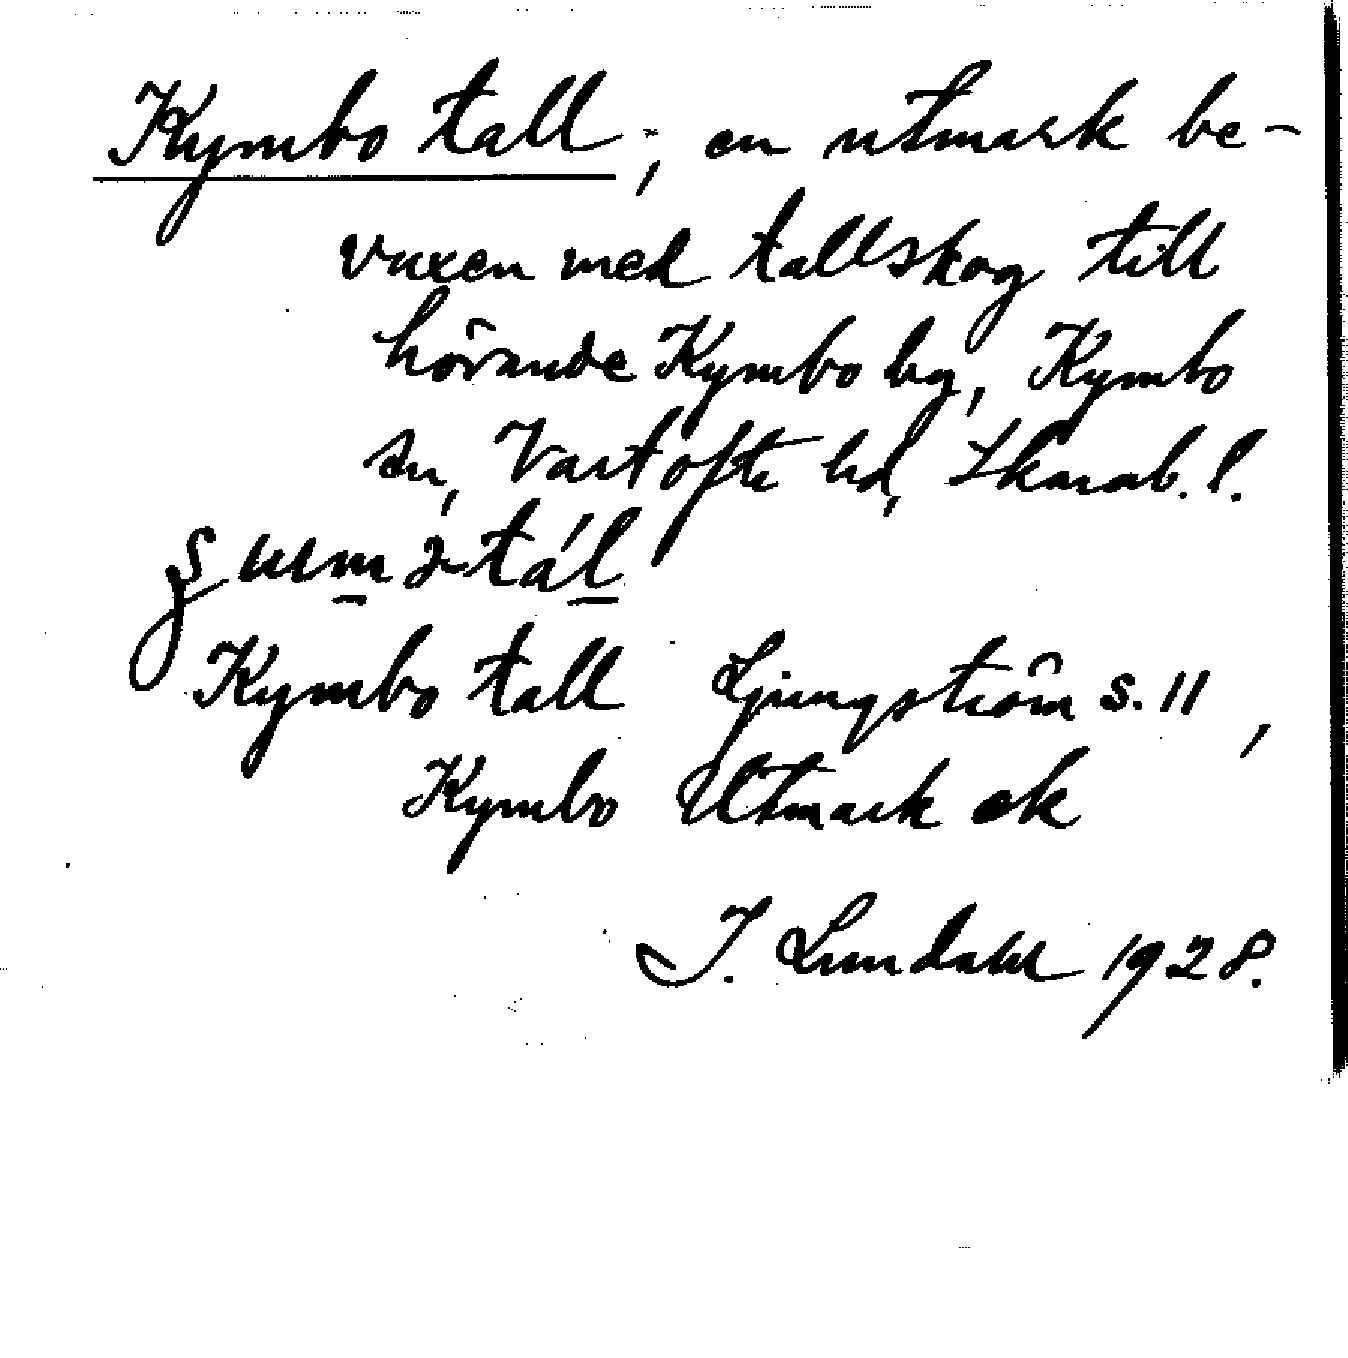 Kymbo tall, en utmark be-
vuxen med tallskog till
hörande Kymbo by, Kymbo
sn, Vartofte hd, Skarab. l.
Kymbo tall Ljungström s. 11,
Kymbo Utmark ek
I. Lundahl 1928.